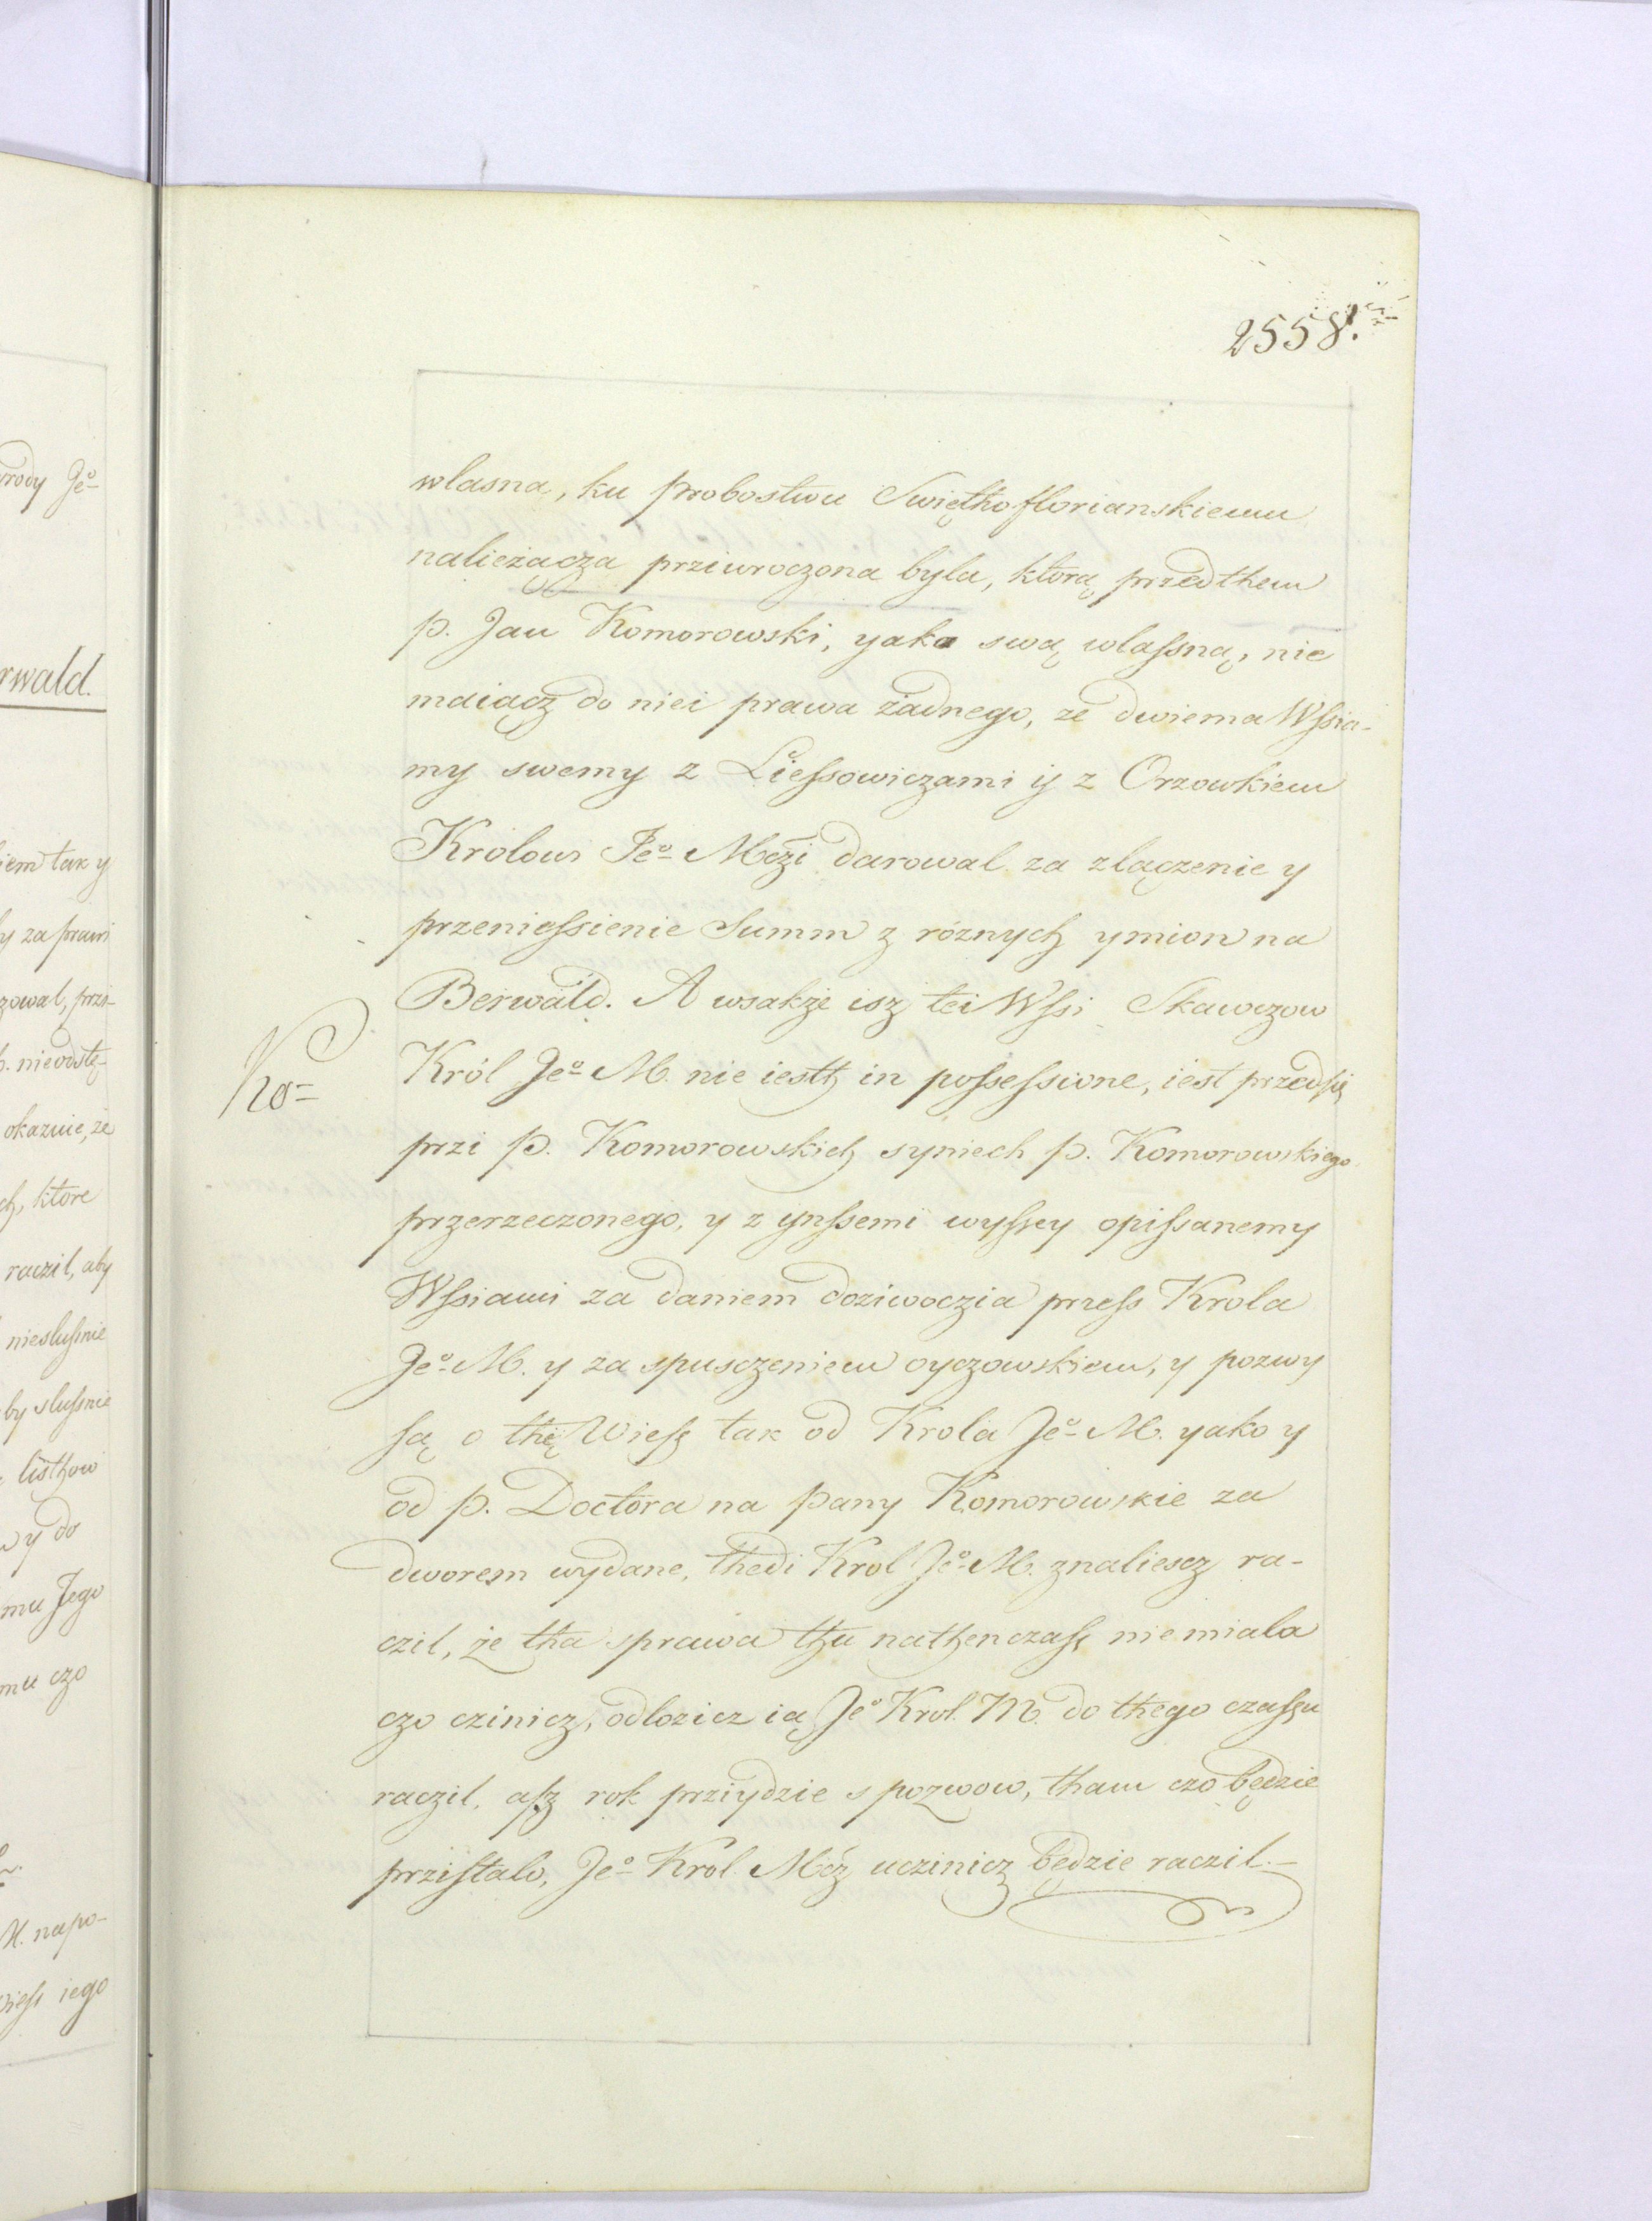 2558.
wlasna, ku probostwu Swięthoflorianskiemu
należącza prziwroczona byla, którą przedthem
p. Jan Komorowski, yako swą wlaſsną, nie
maiącz do niei prawa żadnego, ze dwiema Wſsia-
my swemy z Lieſsowiczami ij z Orzowkiem
Krolowi Jeº Mczi darowal za zlączenie y
przenieſsienie Summ z róznych ymion na
Berwald. A wsakże isz tei Wſsi Skawczow
Król Jeº M. nie iesth in poſseſsione, iest przedsię
przi p. Komorowskich syniech p. Komorowskiego
przerzeczonego, y z ynſsemi wyſsey opiſsanemy
Wſsiami za daniem dożiwoczia przeſs Krola
Jeº M. y za spusczeniem oyczowskiem, y pozwy
ſą o thę Wieſs tak od Krola Jeº M. yako y
od p. Doctora na pany Komorowskie za
dworem wydane, thedi Krol Jeº M. znaliescz ra-
czil, że tha sprawa thu nathenczaſs nie miala
czo czinicz, odlozicz ią Jeº Krol. M. do thego czaſsu
raczil, aſz rok prziydzie s pozwow, tham czo będzie
przistalo, Jeº Krol. Mcz uczinicz będzie raczil.—
rody Jeº
rwald.
iem tak y
y za prawi
zowal, przi-
p. nieodstę-
okazuie, że
ch, ktore
raczil, aby
nieslusſnie
by sluſsnie
listhow
y do
mu Jego
mu czo
M. napo-
wieſs iego